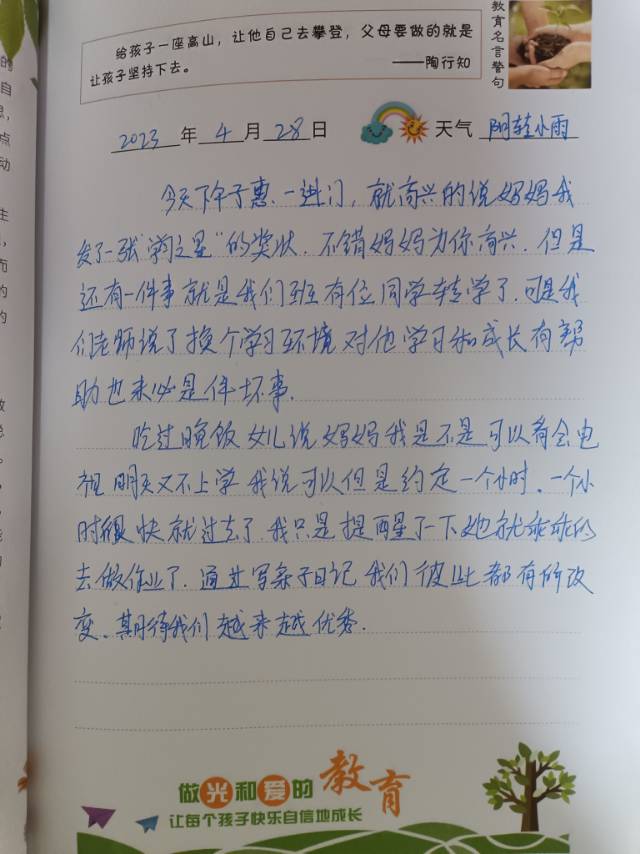 给孩子一座高山，让他自己去攀登，父母要做的就是
让孩子坚持下去。 ——陶行知
教育名言警句
2023年4月28日 天气 阴转小雨
今天下午子惠.一进门，就高兴的说妈妈我
发了一张“学习之星”的奖状.不错妈妈为你高兴.但是
还有一件事就是我们班有位同学转学了.可是我
们老师说了换个学习环境对他学习和成长有帮
助也未必是件坏事.
吃过晚饭女儿说妈妈我是不是可以看会电
视明天又不上学我说可以但是约定一个小时.一个小
时很快就过去了.我只是提醒了一下她就乖乖的
去做作业了.通过写亲子日记我们彼此都有所改
变.期待我们越来越优秀.
做光和爱的教育
让每个孩子快乐自信地成长